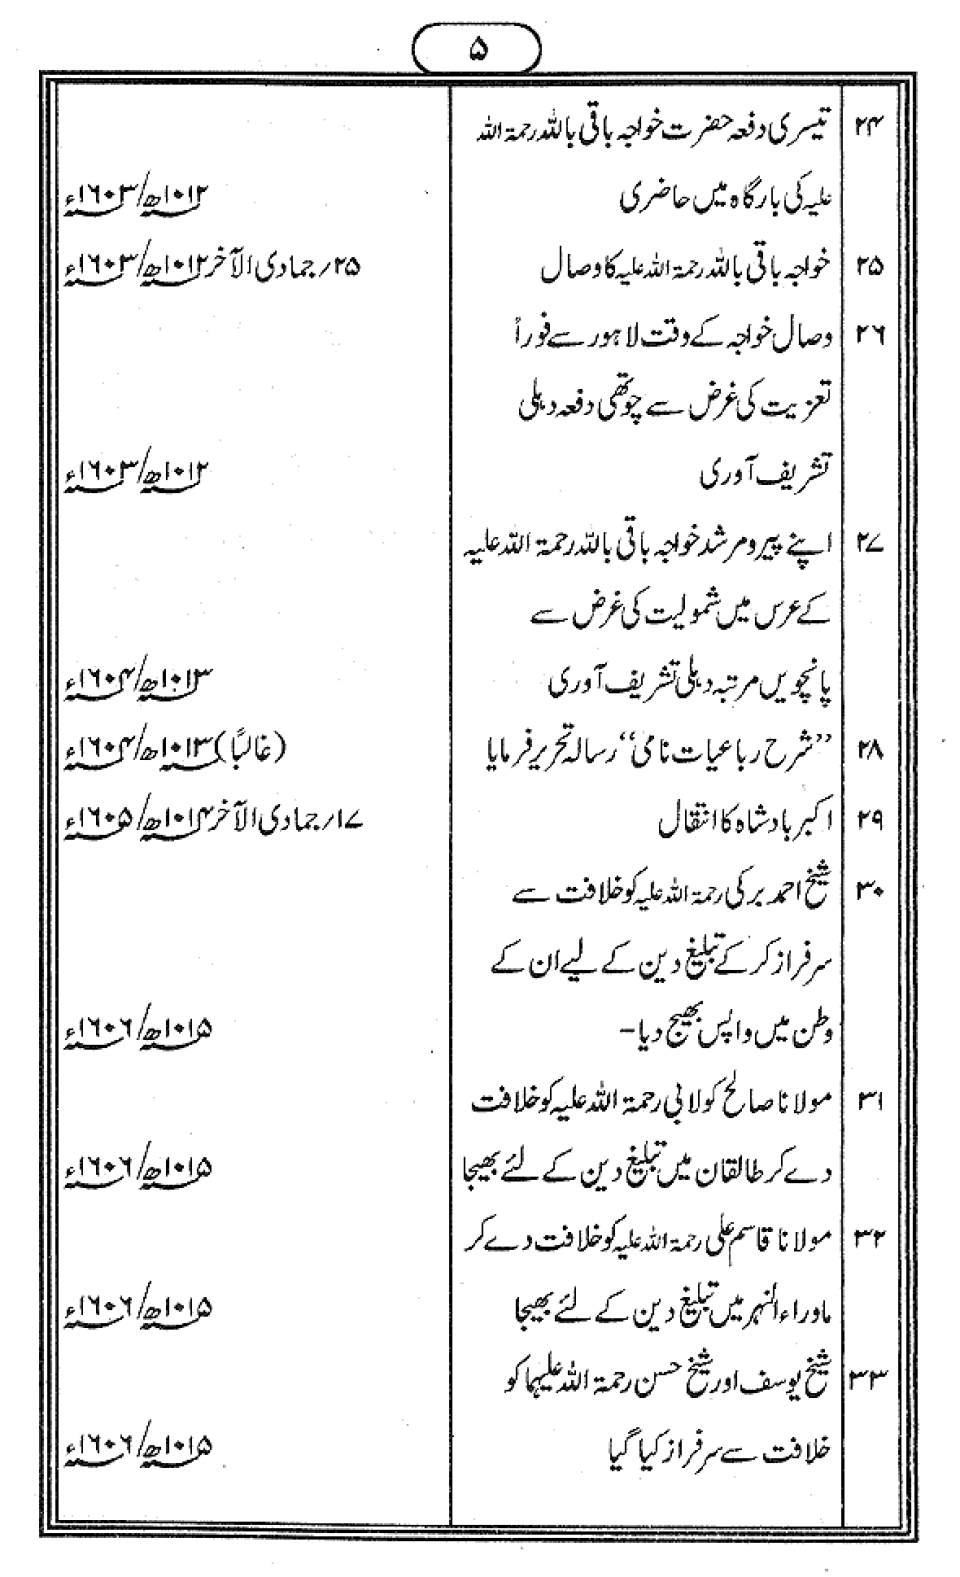 ۵
۲۴ تیسری دفعہ حضرت خواجہ باقی باللہ رحمۃ اللہ
علیہ کی بارگاہ میں حاضری ۱۰۱۲ھ/۱۶۰۳ء
۲۵ خواجہ باقی باللہ رحمۃ اللہ علیہ کا وصال ۲۵/جمادی الآخر ۱۰۱۲ھ/۱۶۰۳ء
۲۶ وصال خواجہ کے وقت لاہور سے فوراً
تعزیت کی غرض سے چوتھی دفعہ دہلی
تشریف آوری ۱۰۱۲ھ/۱۶۰۳ء
۲۷ اپنے پیر و مرشد خواجہ باقی باللہ رحمۃ اللہ علیہ
کے عرس میں شمولیت کی غرض سے
پانچویں مرتبہ دہلی تشریف آوری ۱۰۱۳ھ/۱۶۰۴ء
۲۸ ’’شرح رباعیات نامی‘‘ رسالہ تحریر فرمایا (غالبًا) ۱۰۱۳ھ/۱۶۰۴ء
۲۹ اکبر بادشاہ کا انتقال ۱۷/جمادی الآخر ۱۰۱۴ھ/۱۶۰۵ء
۳۰ شیخ احمد برکی رحمۃ اللہ علیہ کو خلافت سے
سرفراز کر کے تبلیغ دین کے لیے ان کے
وطن میں واپس بھیج دیا۔ ۱۰۱۵ھ/۱۶۰۶ء
۳۱ مولانا صالح کولابی رحمۃ اللہ علیہ کو خلافت
دے کر طالقان میں تبلیغ دین کے لئے بھیجا ۱۰۱۵ھ/۱۶۰۶ء
۳۲ مولانا قاسم علی رحمۃ اللہ علیہ کو خلافت دے کر
ماوراء النہر میں تبلیغ دین کے لئے بھیجا ۱۰۱۵ھ/۱۶۰۶ء
۳۳ شیخ یوسف اور شیخ حسن رحمۃ اللہ علیہما کو
خلافت سے سرفراز کیا گیا ۱۰۱۵ھ/۱۶۰۶ء